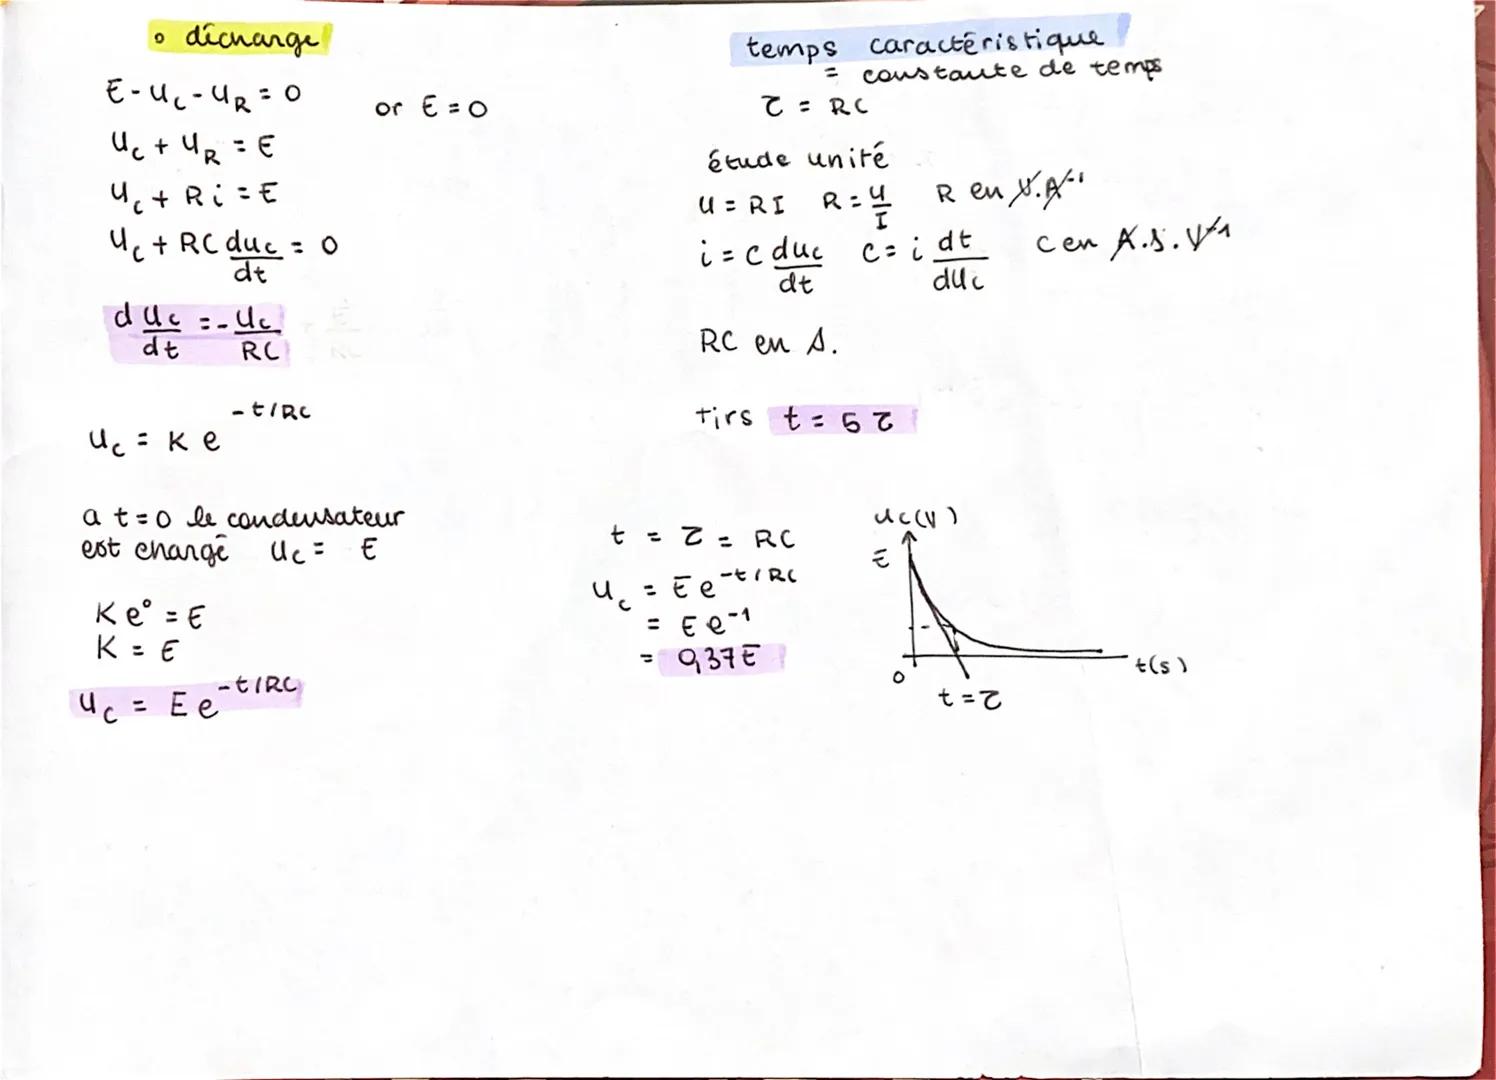 ° décharge
E - uc - uR = 0 or E = 0
uc + uR = E
uc + Ri = E
uc + RC duc/dt = 0
duc/dt = - uc/RC
uc = K e^-t/RC
a t=0 le condensateur
est chargé uc = E
K e° = E
K = E
uc = E e^-t/RC
temps caractéristique
= constante de temps
τ = RC
étude unité
u = RI R = u/I R en V.A^-1
i = c duc/dt c = i dt/duc c en A.s.V^-1
RC en s.
t = 5 τ
t = τ = RC
uc = E e^-t/RC
= E e^-1
= 0,37E
uc(V)
E
0
t(s)
t = τ